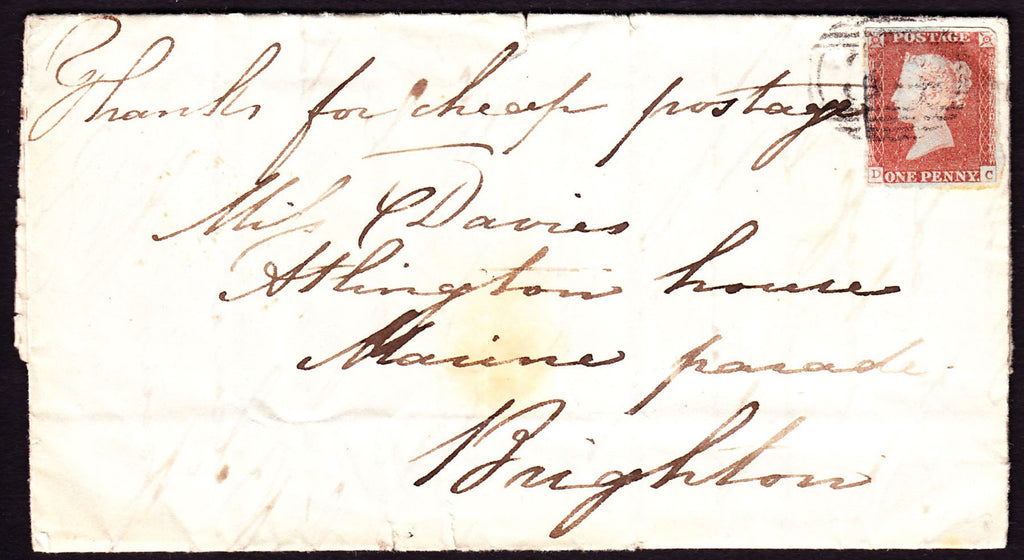 Thanks for cheap postage
POSTAGE
D ONE PENNY. C
Miss C Davies
Athlington house
Marine parade.
Brighton